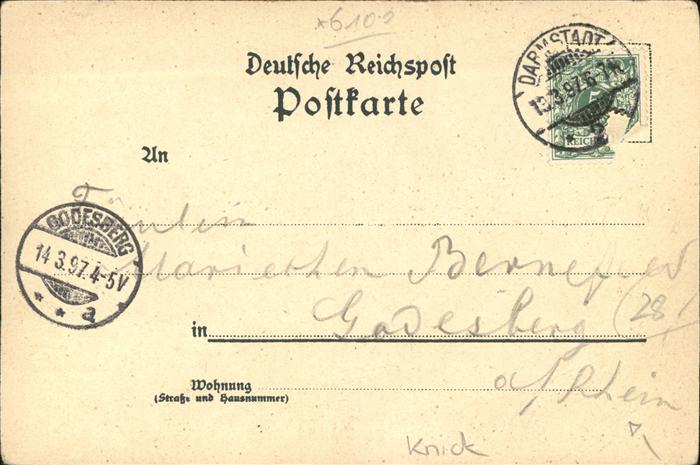 *6109
Deutsche Reichspost
Postkarte
DARMSTADT
13.3.97. 6-7N.
REICHS
An
Fräulein
Mariechen
GODESBERG
14.3.97. 4-5V
* * a
in Godesberg
(28)
Wohnung
(Straße und Hausnummer)
a/Rhein
Knick